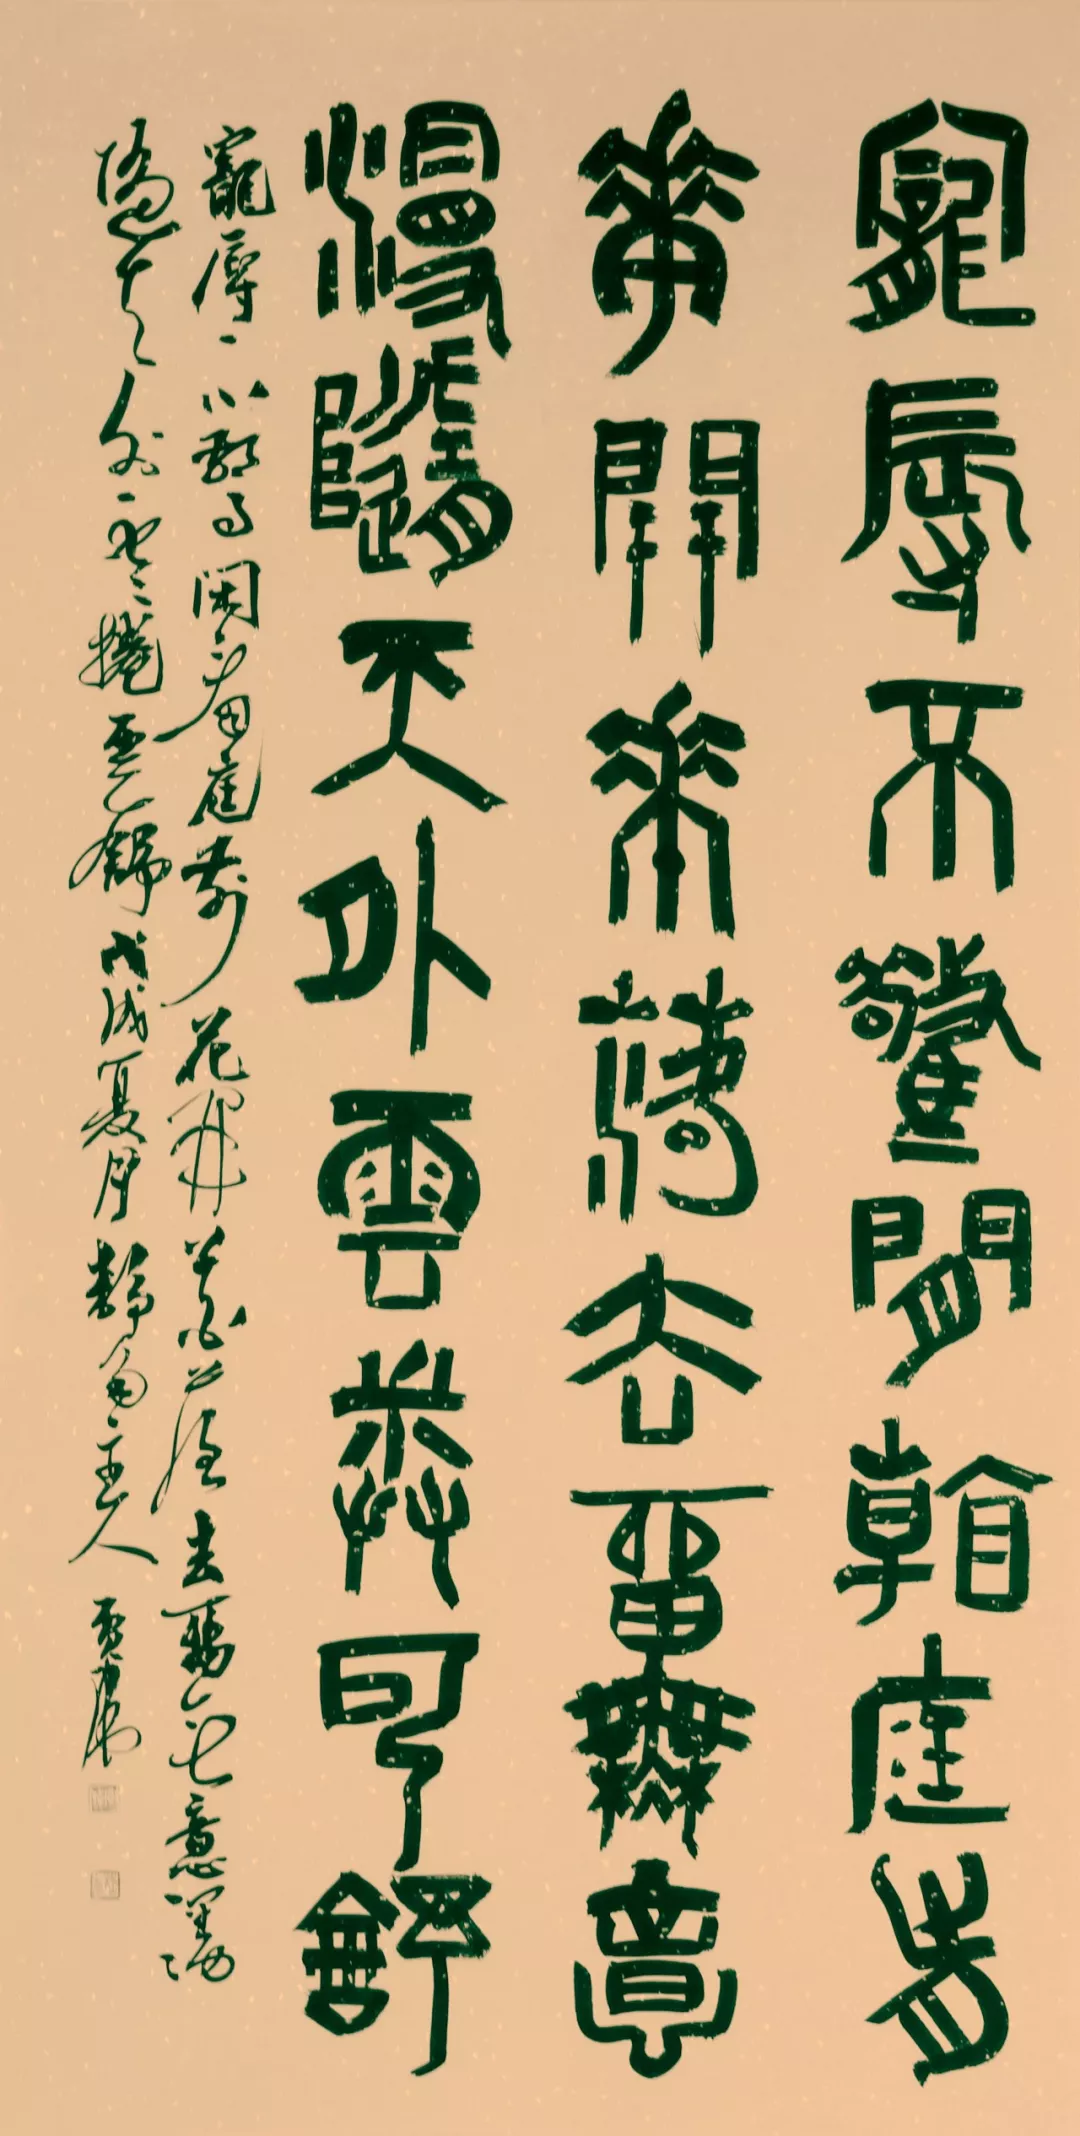 寵辱不驚閒看庭前
華開華落去留無意
漫隨天外雲卷云舒
寵辱不驚閑看庭前花開花落去留無意漫
隨天外雲捲雲舒戊戌夏月靜齋主人